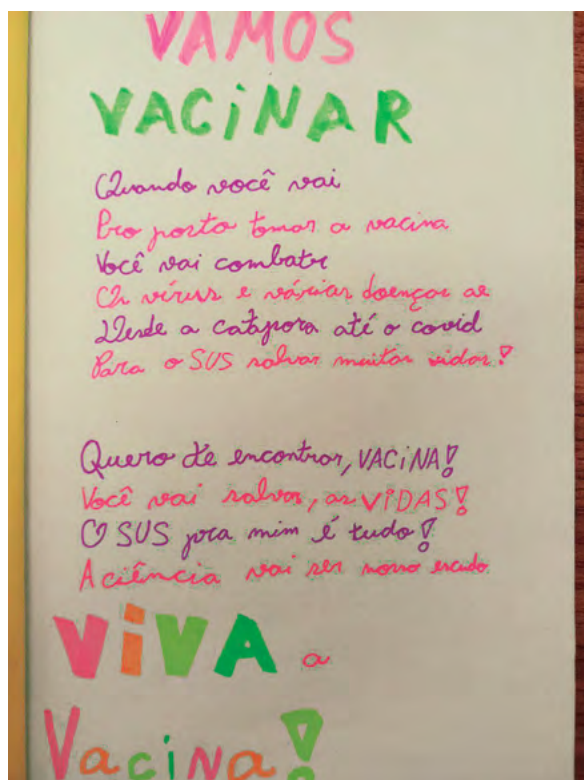 VAMOS
VACiNAR
Quando você vai
Pro posto tomar a vacina
Você vai combater
Os vírus e várias doenças ae
Desde a catapora até o covid
Para o SUS salvar muitas vidas!
Quero te encontrar, VACiNA!
Você vai salvar, as ViDAS!
O SUS pra mim é tudo!
A ciência vai ser nosso escudo
ViVA a
VaciNa!